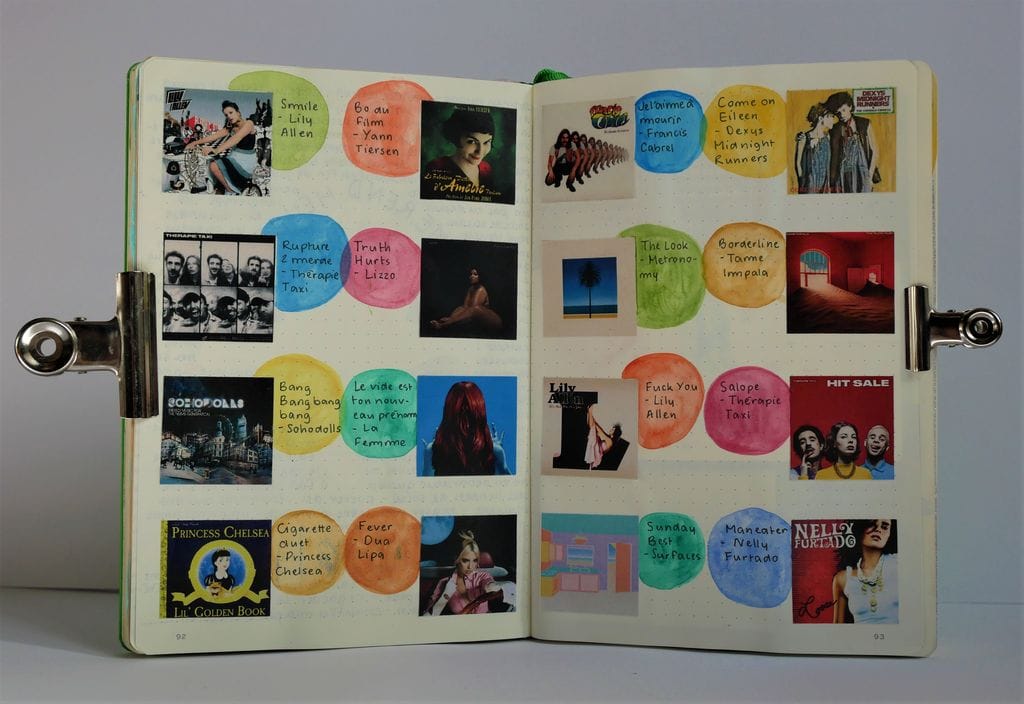 LILY
ALLEN
Smile
- Lily
Allen
Bo du
film
- Yann
Tiersen
Le Fabuleux Destin
d'Amélie
THERAPIE TAXI
Rupture
2 merde
- Thérapie
Taxi
Truth
Hurts
- Lizzo
SOHODOLLS
Bang
Bang bang
bang
- Sohodolls
Le vide est
ton nouv-
eau prénom
- La
Femme
PRINCESS CHELSEA
LIL' GOLDEN BOOK
Cigarette
duet
- Princess
Chelsea
Fever
- Dua
Lipa
92
Je l'aime à
mourir
- Francis
Cabrel
Come on
Eileen
- Dexys
Midnight
Runners
DEXYS
MIDNIGHT
RUNNERS
The Look
- Metrono-
my
Borderline
- Tame
Impala
Lily
Allen
Fuck You
- Lily
Allen
Salope
- Thérapie
Taxi
HIT SALE
Sunday
Best
- Surfaces
Maneater
- Nelly
Furtado
NELLY
FURTADO
Loose
93